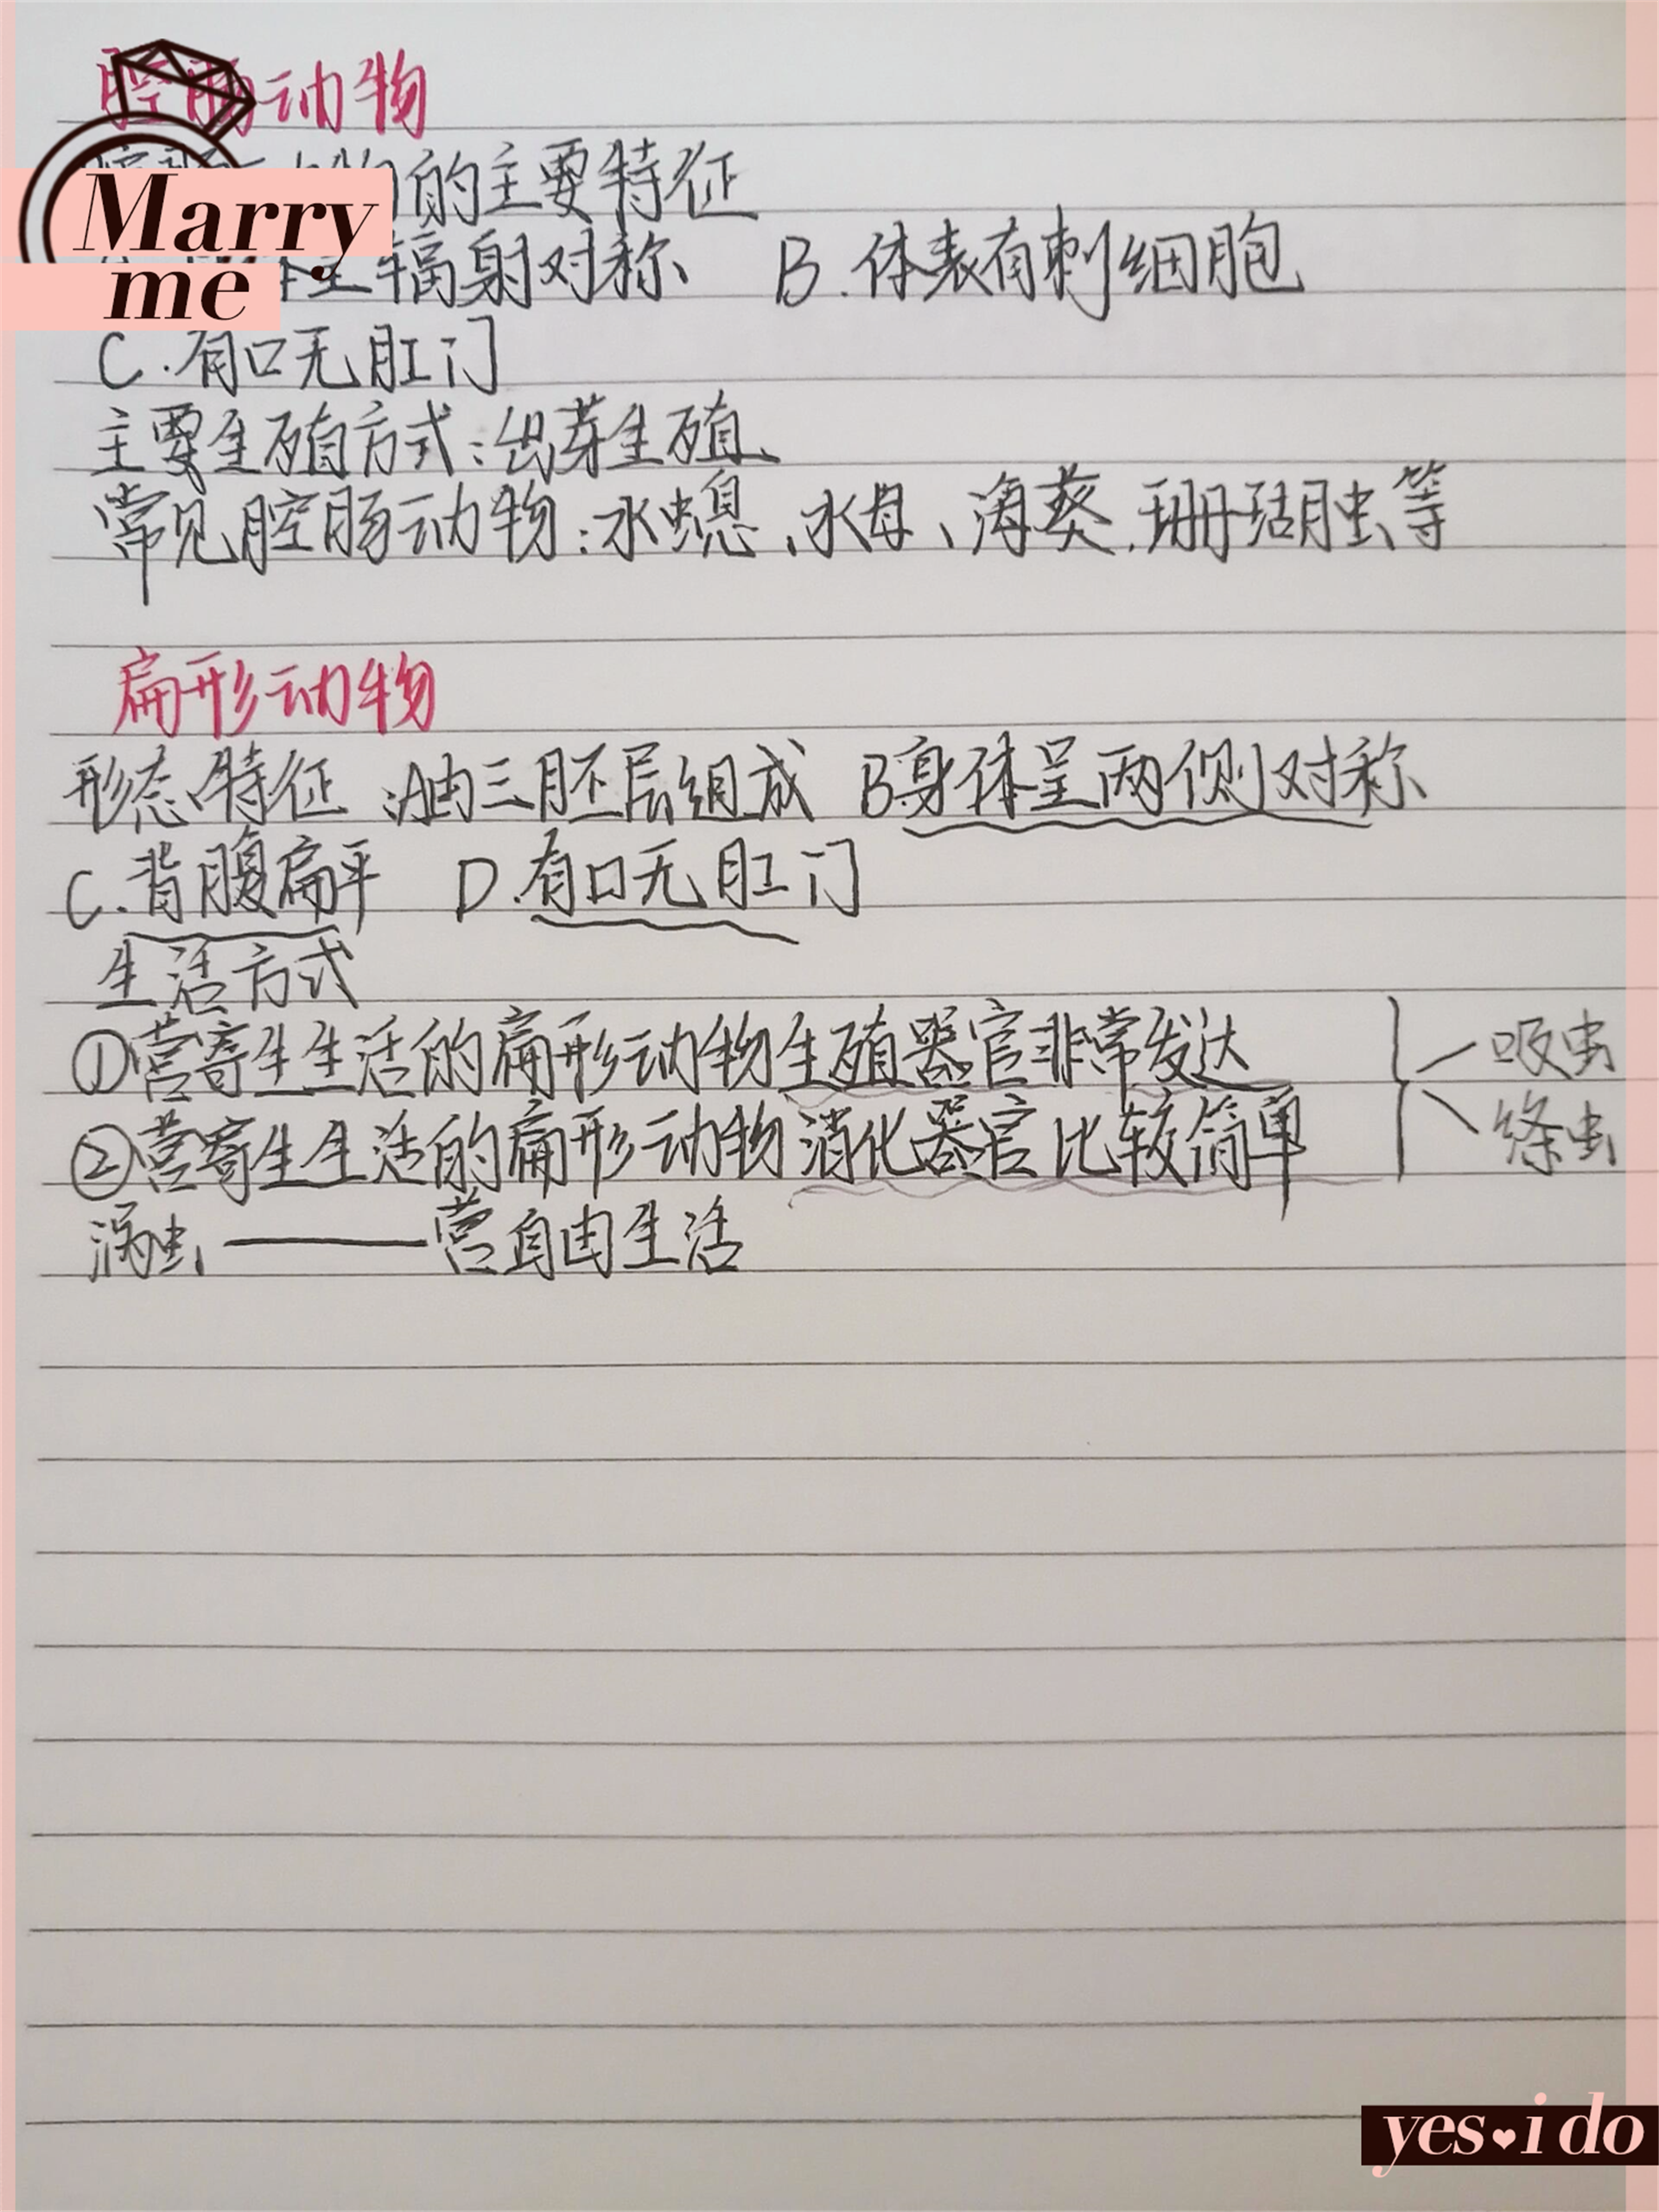 腔肠动物
的主要特征
辐射对称 B.体表有刺细胞
C.有口无肛门
主要生殖方式:出芽生殖
常见腔肠动物:水螅、水母、海葵、珊瑚虫等
扁形动物
形态特征:A由三胚层组成 B身体呈两侧对称
C.背腹扁平 D.有口无肛门
生活方式
①营寄生生活的扁形动物生殖器官非常发达
②营寄生生活的扁形动物消化器官比较简单
吸虫
绦虫
涡虫——营自由生活
Marry
me
yes i do